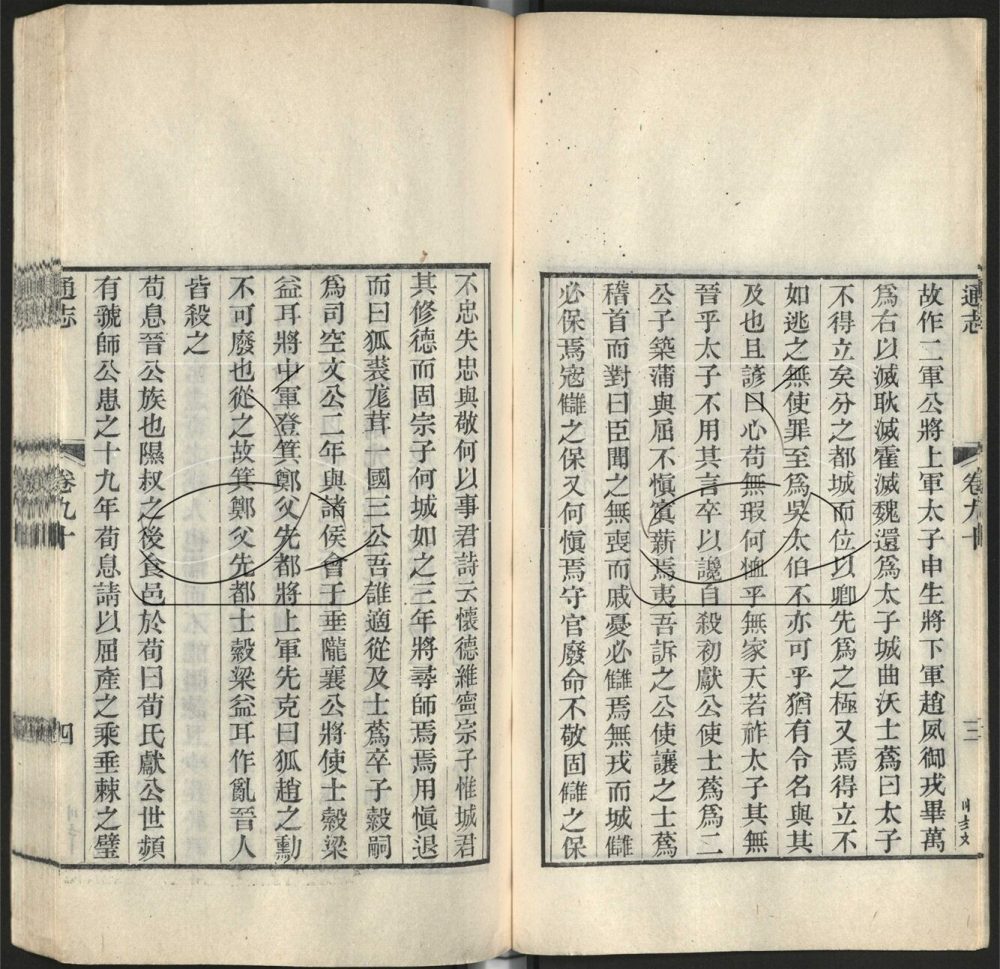 通志
卷九十
三
故作二軍公將上軍太子申生將下軍趙夙御戎畢萬
爲右以滅耿滅霍滅魏還爲太子城曲沃士蒍曰太子
不得立矣分之都城而位以卿先爲之極又焉得立不
如逃之無使罪至爲吳太伯不亦可乎猶有令名與其
及也且諺曰心苟無瑕何恤乎無家天若祚太子其無
晉乎太子不用其言卒以讒自殺初獻公使士蒍爲二
公子築蒲與屈不愼寘薪焉夷吾訴之公使讓之士蒍
稽首而對曰臣聞之無喪而戚憂必讎焉無戎而城讎
必保焉寇讎之保又何愼焉守官廢命不敬固讎之保
不忠失忠與敬何以事君詩云懷德維寧宗子惟城君
其修德而固宗子何城如之三年將尋師焉焉用愼退
而曰狐裘尨茸一國三公吾誰適從及士蒍卒子縠嗣
爲司空文公二年與諸侯會于垂隴襄公將使士縠梁
益耳將中軍登箕鄭父先都將上軍先克曰狐趙之勳
不可廢也從之故箕鄭父先都士縠梁益耳作亂晉人
皆殺之
荀息晉公族也隰叔之後食邑於荀曰荀氏獻公世頻
有虢師公患之十九年荀息請以屈產之乘垂棘之璧
通志
卷九十
四